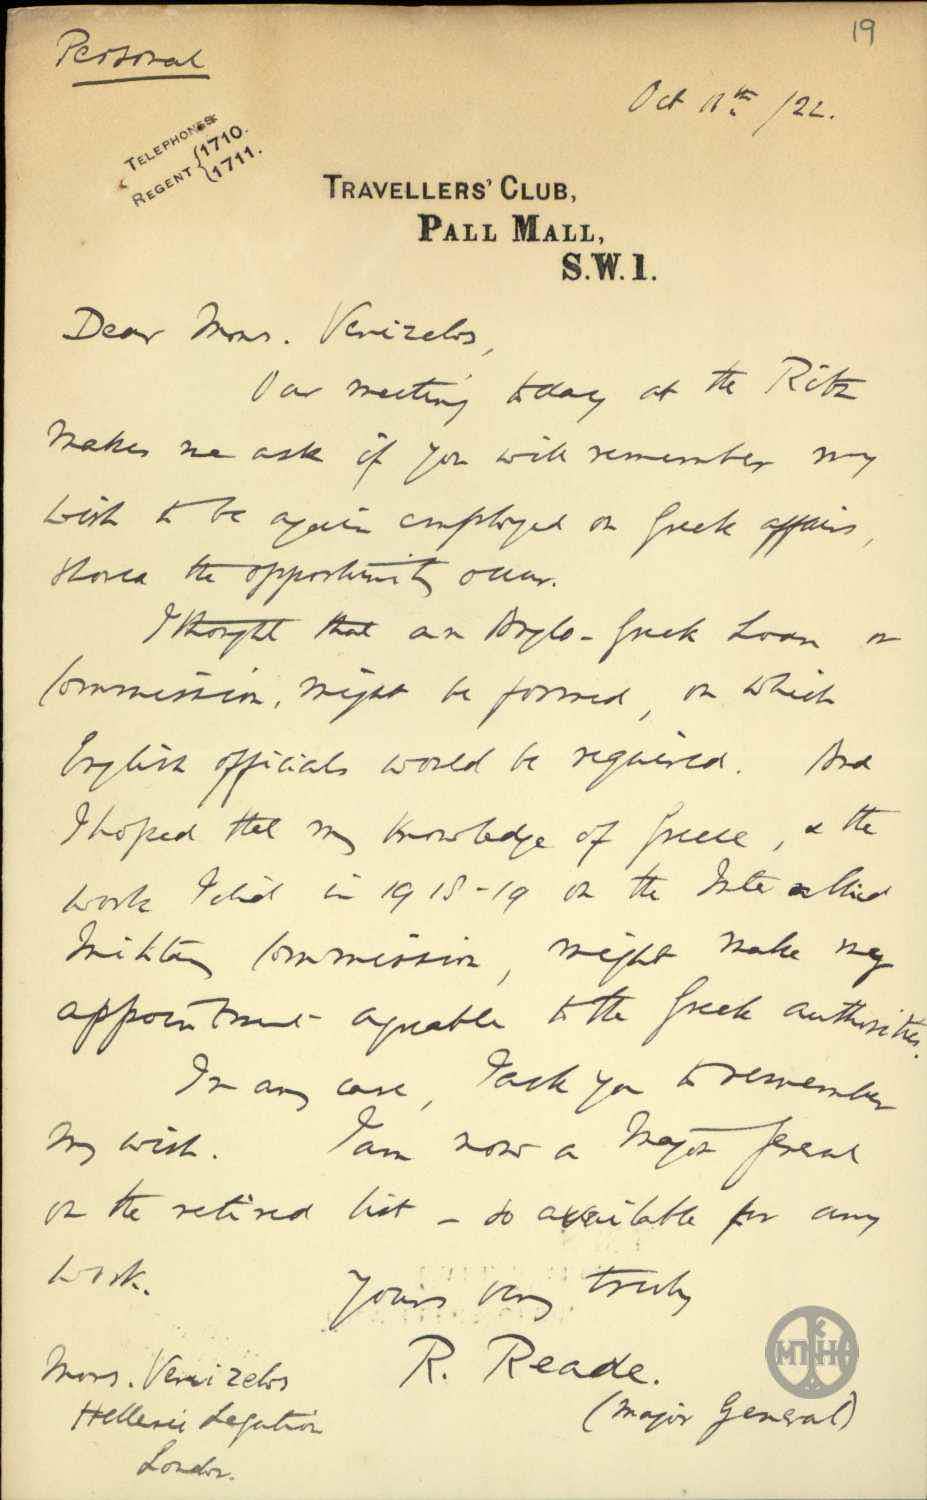 19
Personal
Oct 11th /22.
TELEPHONES
REGENT {1710.
1711.
TRAVELLERS' CLUB,
PALL MALL,
S.W.1.
Dear Mons. Venizelos,
Our meeting today at the Ritz
makes me ask if you will remember my
wish to be again employed on Greek affairs,
should the opportunity occur.
I thought that an Anglo-Greek Loan or
Commission, might be formed, on which
English officials would be required. And
I hoped that my knowledge of Greece, & the
work I did in 1918-19 on the Inter allied
Military Commission, might make my
appointment agreeable to the Greek authorities.
In any case, I ask you to remember
my wish. I am now a Major General
on the retired list - so available for any
work.
Yours very truly
R. Reade.
(Major General)
Mons. Venizelos
Hellenic Legation
London.
ΜΠΚΗ